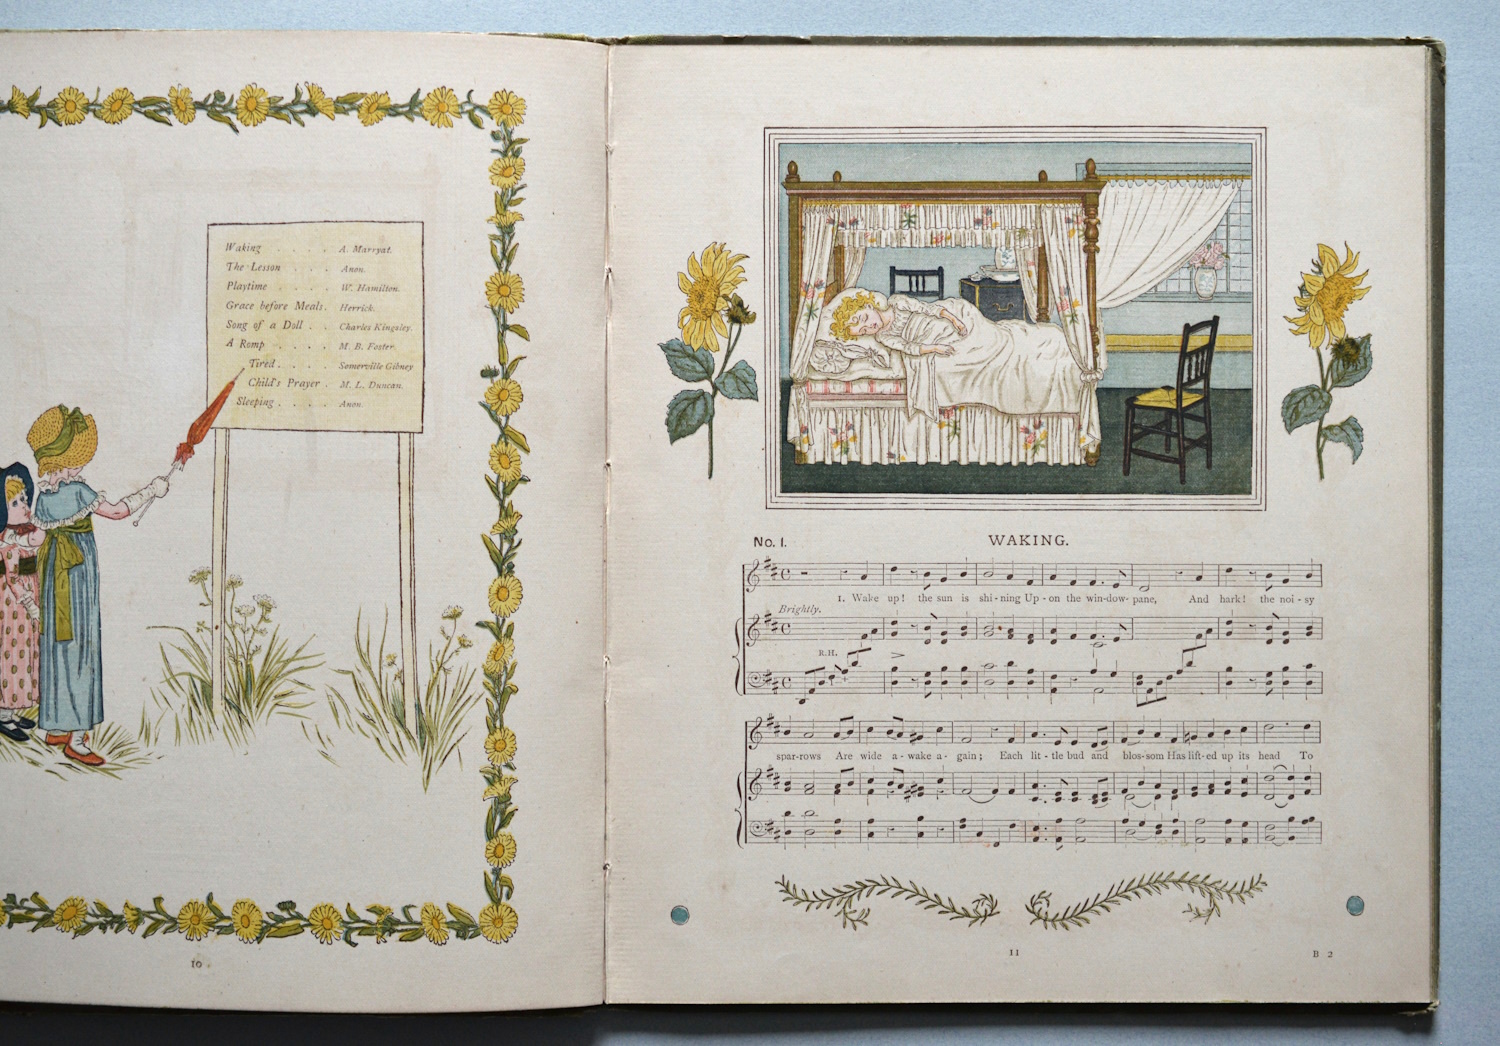 Waking . . . . A. Marryat.
The Lesson . . . Anon.
Playtime . . . . W. Hamilton.
Grace before Meals. Herrick.
Song of a Doll . . Charles Kingsley.
A Romp . . . . M. B. Foster.
Tired . . . . Somerville Gibney
Child's Prayer . M. L. Duncan.
Sleeping . . . . Anon.
10
No. 1. WAKING.
1. Wake up! the sun is shi-ning Up-on the win-dow-pane, And hark! the noi-sy
Brightly.
R.H.
spar-rows Are wide a-wake a-gain; Each lit-tle bud and blos-som Has lift-ed up its head To
11 B 2